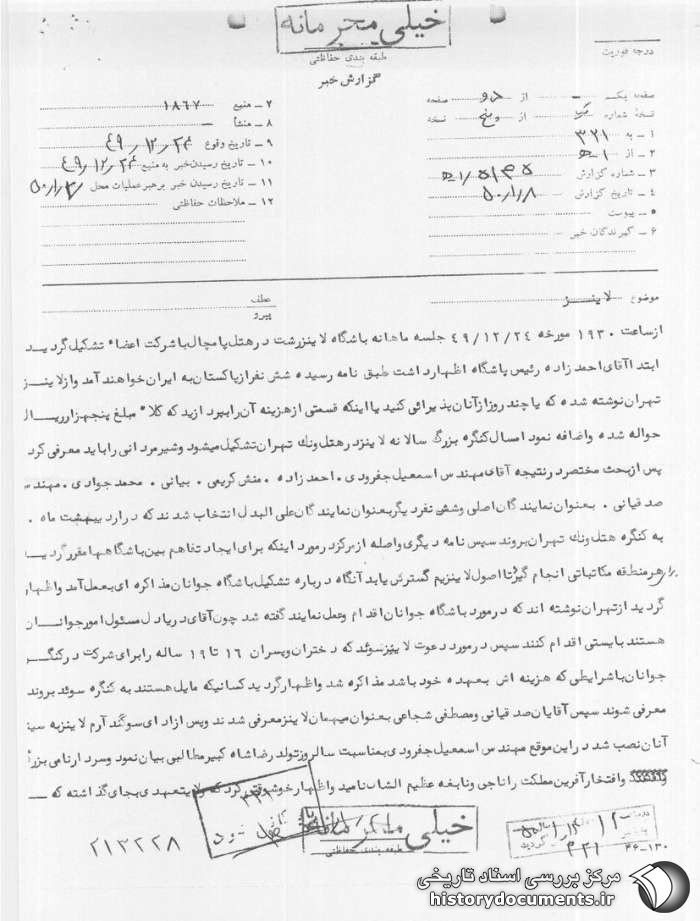 خیلی محرمانه
طبقه بندی حفاظتی
گزارش خبر
درجه فوریت
صفحه یک از دو صفحه
نسخه شماره یک از پنج نسخه
۱ – به ۳۲۱
۲ – از ۱ ه‍
۳ – شماره گزارش
۴ – تاریخ گزارش ۵۰/۱/۸
۵ – پیوست
۶ – گیرندگان خبر
۷ – منبع ۱۸۶۷
۸ – منشأ –
۹ – تاریخ وقوع ۴۹/۱۲/۲۴
۱۰ – تاریخ رسیدن خبر به منبع ۴۹/۱۲/۲۴
۱۱ – تاریخ رسیدن خبر برهبر عملیات محل
۱۲ – ملاحظات حفاظتی
موضوع لاینز
عطف
پیرو
از ساعت ۱۹۳۰ مورخه ۴۹/۱۲/۲۴ جلسه ماهانه باشگاه لاینز رشت در هتل پامچال با شرکت اعضاء تشکیل گردید
ابتدا آقای احمد زاده رئیس باشگاه اظهار داشت طبق نامه رسیده شش نفر از پاکستان به ایران خواهند آمد و از لاینز
تهران نوشته شده که یا چند روز از آنان پذیرائی کنید یا اینکه قسمتی از هزینه آن را بپردازید که کلاً مبلغ پنجهزار ریال
حواله شده واضافه نمود امسال کنگره بزرگ سالانه لاینز در هتل ونک تهران تشکیل میشود و شیر مردانی را باید معرفی کرد
پس از بحث مختصر در نتیجه آقای مهندس اسمعیل جفرودی . احمد زاده . منش کریمی . بیانی . محمد جوادی . مهندس
صدقیانی . بعنوان نمایندگان اصلی وشش نفر دیگر بعنوان نمایندگان علی البدل انتخاب شدند که در اردیبهشت ماه .
به کنگره هتل ونک تهران بروند سپس نامه دیگری واصله از مرکز در مورد اینکه برای ایجاد تفاهم بین باشگاهها مقرر گردیده
در هر منطقه مکاتباتی انجام گیرد تا اصول لاینزیم گسترش یابد آنگاه در باره تشکیل باشگاه جوانان مذاکره ای بعمل آمد و اظهار
گردید از تهران نوشته اند که در مورد باشگاه جوانان اقدام وعمل نمایند گفته شد چون آقای دریادل مسئول امور جوانان
هستند بایستی اقدام کنند سپس در مورد دعوت لاینز سوئد که دختران و پسران ۱۶ تا ۱۹ ساله را برای شرکت در کنگره
جوانان با شرایطی که هزینه اش بعهده خود باشد مذاکره شد و اظهار گردید کسانیکه مایل هستند به کنگره سوئد بروند
معرفی شوند سپس آقایان صدقیانی و مصطفی شجاعی بعنوان میهمان لاینز معرفی شدند و پس از ادای سوگند آرم لاینز به سینه
آنان نصب شد در این موقع مهندس اسمعیل جفرودی بمناسبت سالروز تولد رضا شاه کبیر مطالبی بیان نمود و سردار نامی بزرگ
وافتخار آفرین مملکت را ناجی و نابغه عظیم الشان نامید و اظهار خوشوقتی کرد که ولیعهدی بجای گذاشته که —
۲۱۳۲۲۸
خیلی محرمانه
طبقه بندی حفاظتی
۳۲۱
۴۶-۱۳۰
مرکز بررسی اسناد تاریخی
historydocuments.ir